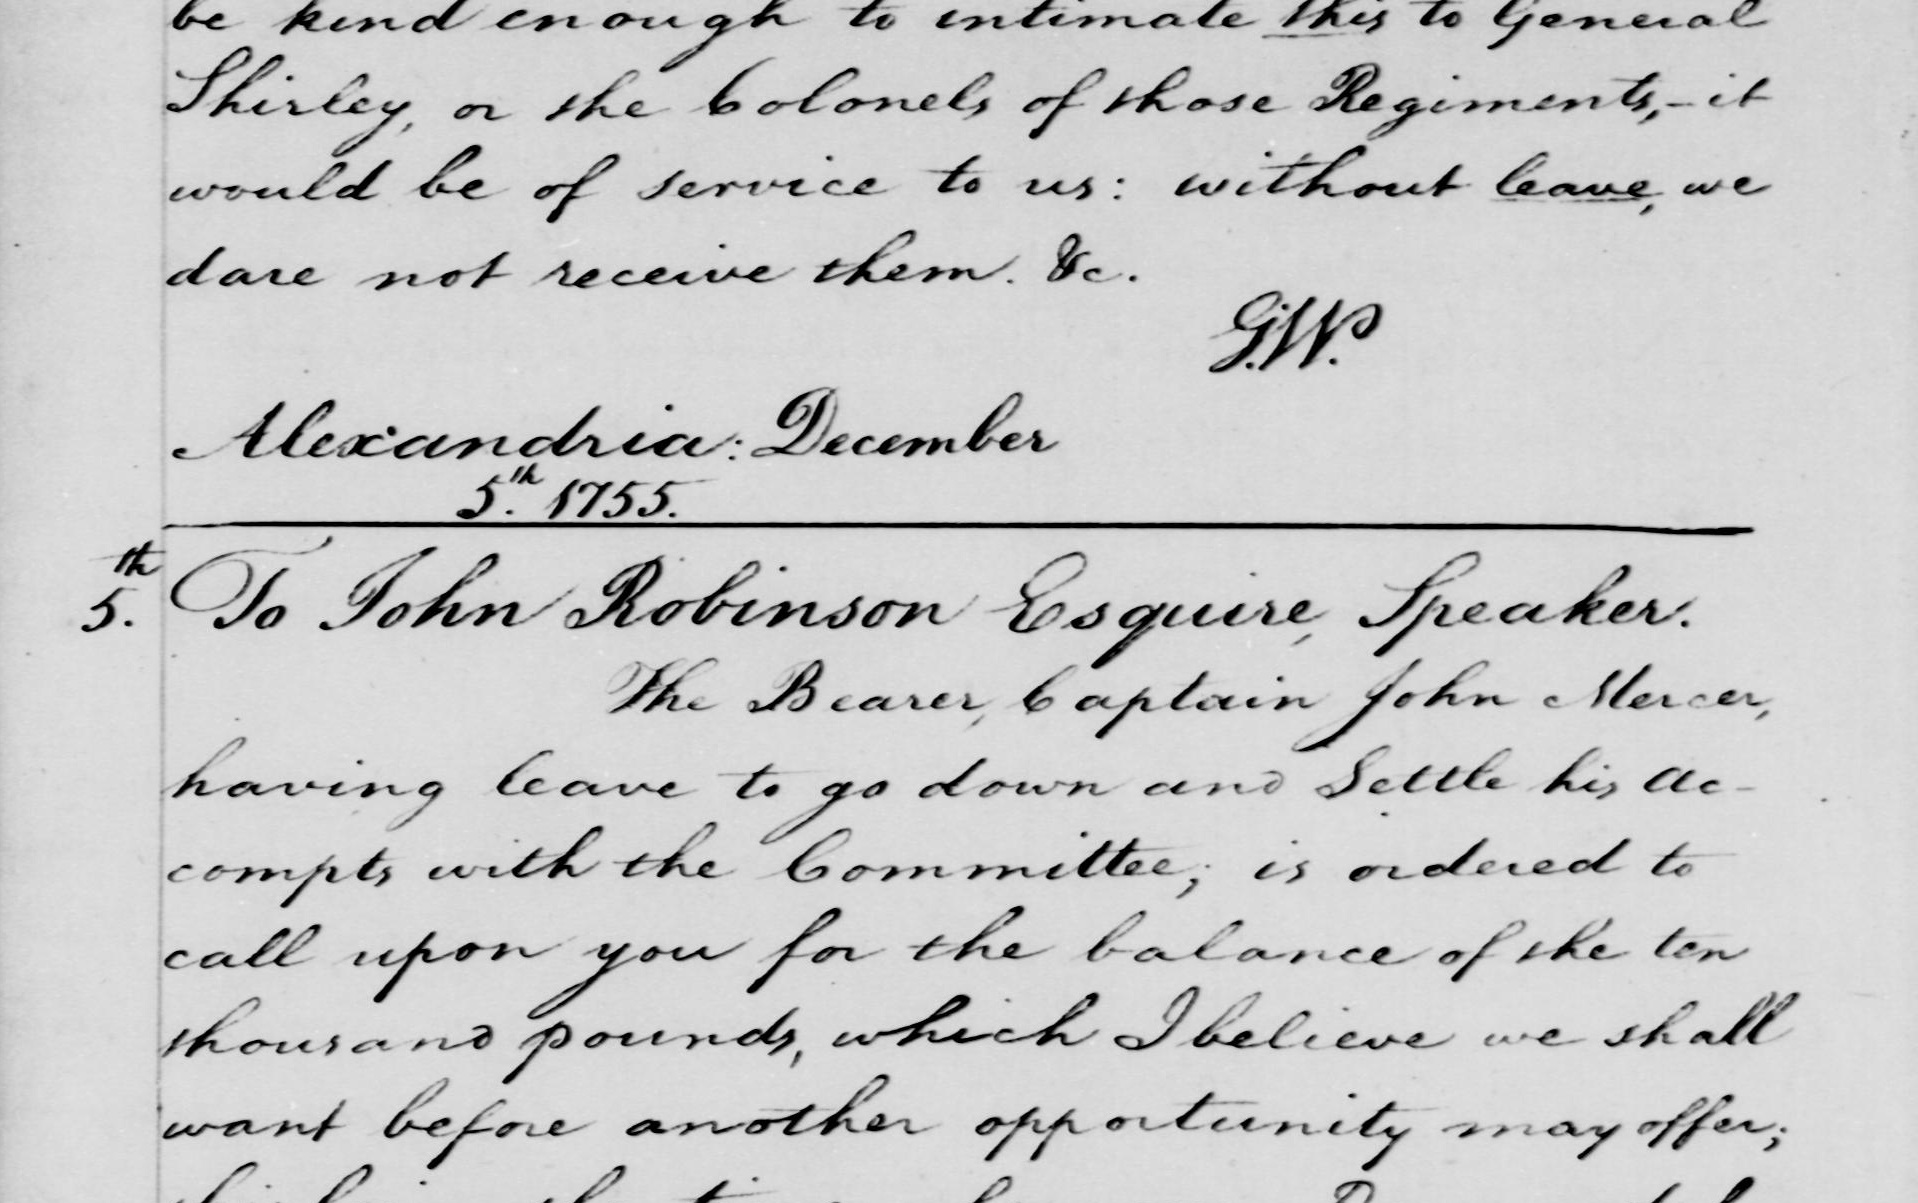 be kind enough to intimate this to General
Shirley, or the Colonels of those Regiments,- it
would be of service to us: without leave, we
dare not receive them. &c.
G.W.
Alexandria: December
5th. 1755.
5th. To John Robinson Esquire, Speaker.
The Bearer, Captain John Mercer,
having leave to go down and Settle his Ac-
compts with the Committee; is ordered to
call upon you for the balance of the ten
thousand pounds, which I believe we shall
want before another opportunity may offer;